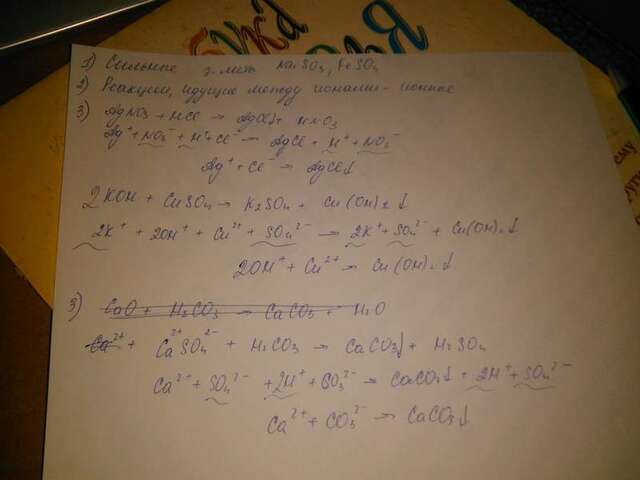 БУКВА
1) Сильные эл-лит Na2SO3, FeSO4
2) Реакции, идущие между ионами - ионные
3) AgNO3 + HCl → AgCl↓ + HNO3
Ag⁺ + NO3⁻ + H⁺ + Cl⁻ → AgCl + H⁺ + NO3⁻
Ag⁺ + Cl⁻ → AgCl↓
2KOH + CuSO4 → K2SO4 + Cu(OH)2↓
2K⁺ + 2OH⁺ + Cu²⁺ + SO4²⁻ → 2K⁺ + SO4²⁻ + Cu(OH)2↓
2OH⁺ + Cu²⁺ → Cu(OH)2↓
3) CaO + H2CO3 → CaCO3 + H2O
Ca²⁺ + Ca²⁺SO4²⁻ + H2CO3 → CaCO3↓ + H2SO4
Ca²⁺ + SO4²⁻ + 2H⁺ + CO3²⁻ → CaCO3↓ + 2H⁺ + SO4²⁻
Ca²⁺ + CO3²⁻ → CaCO3↓